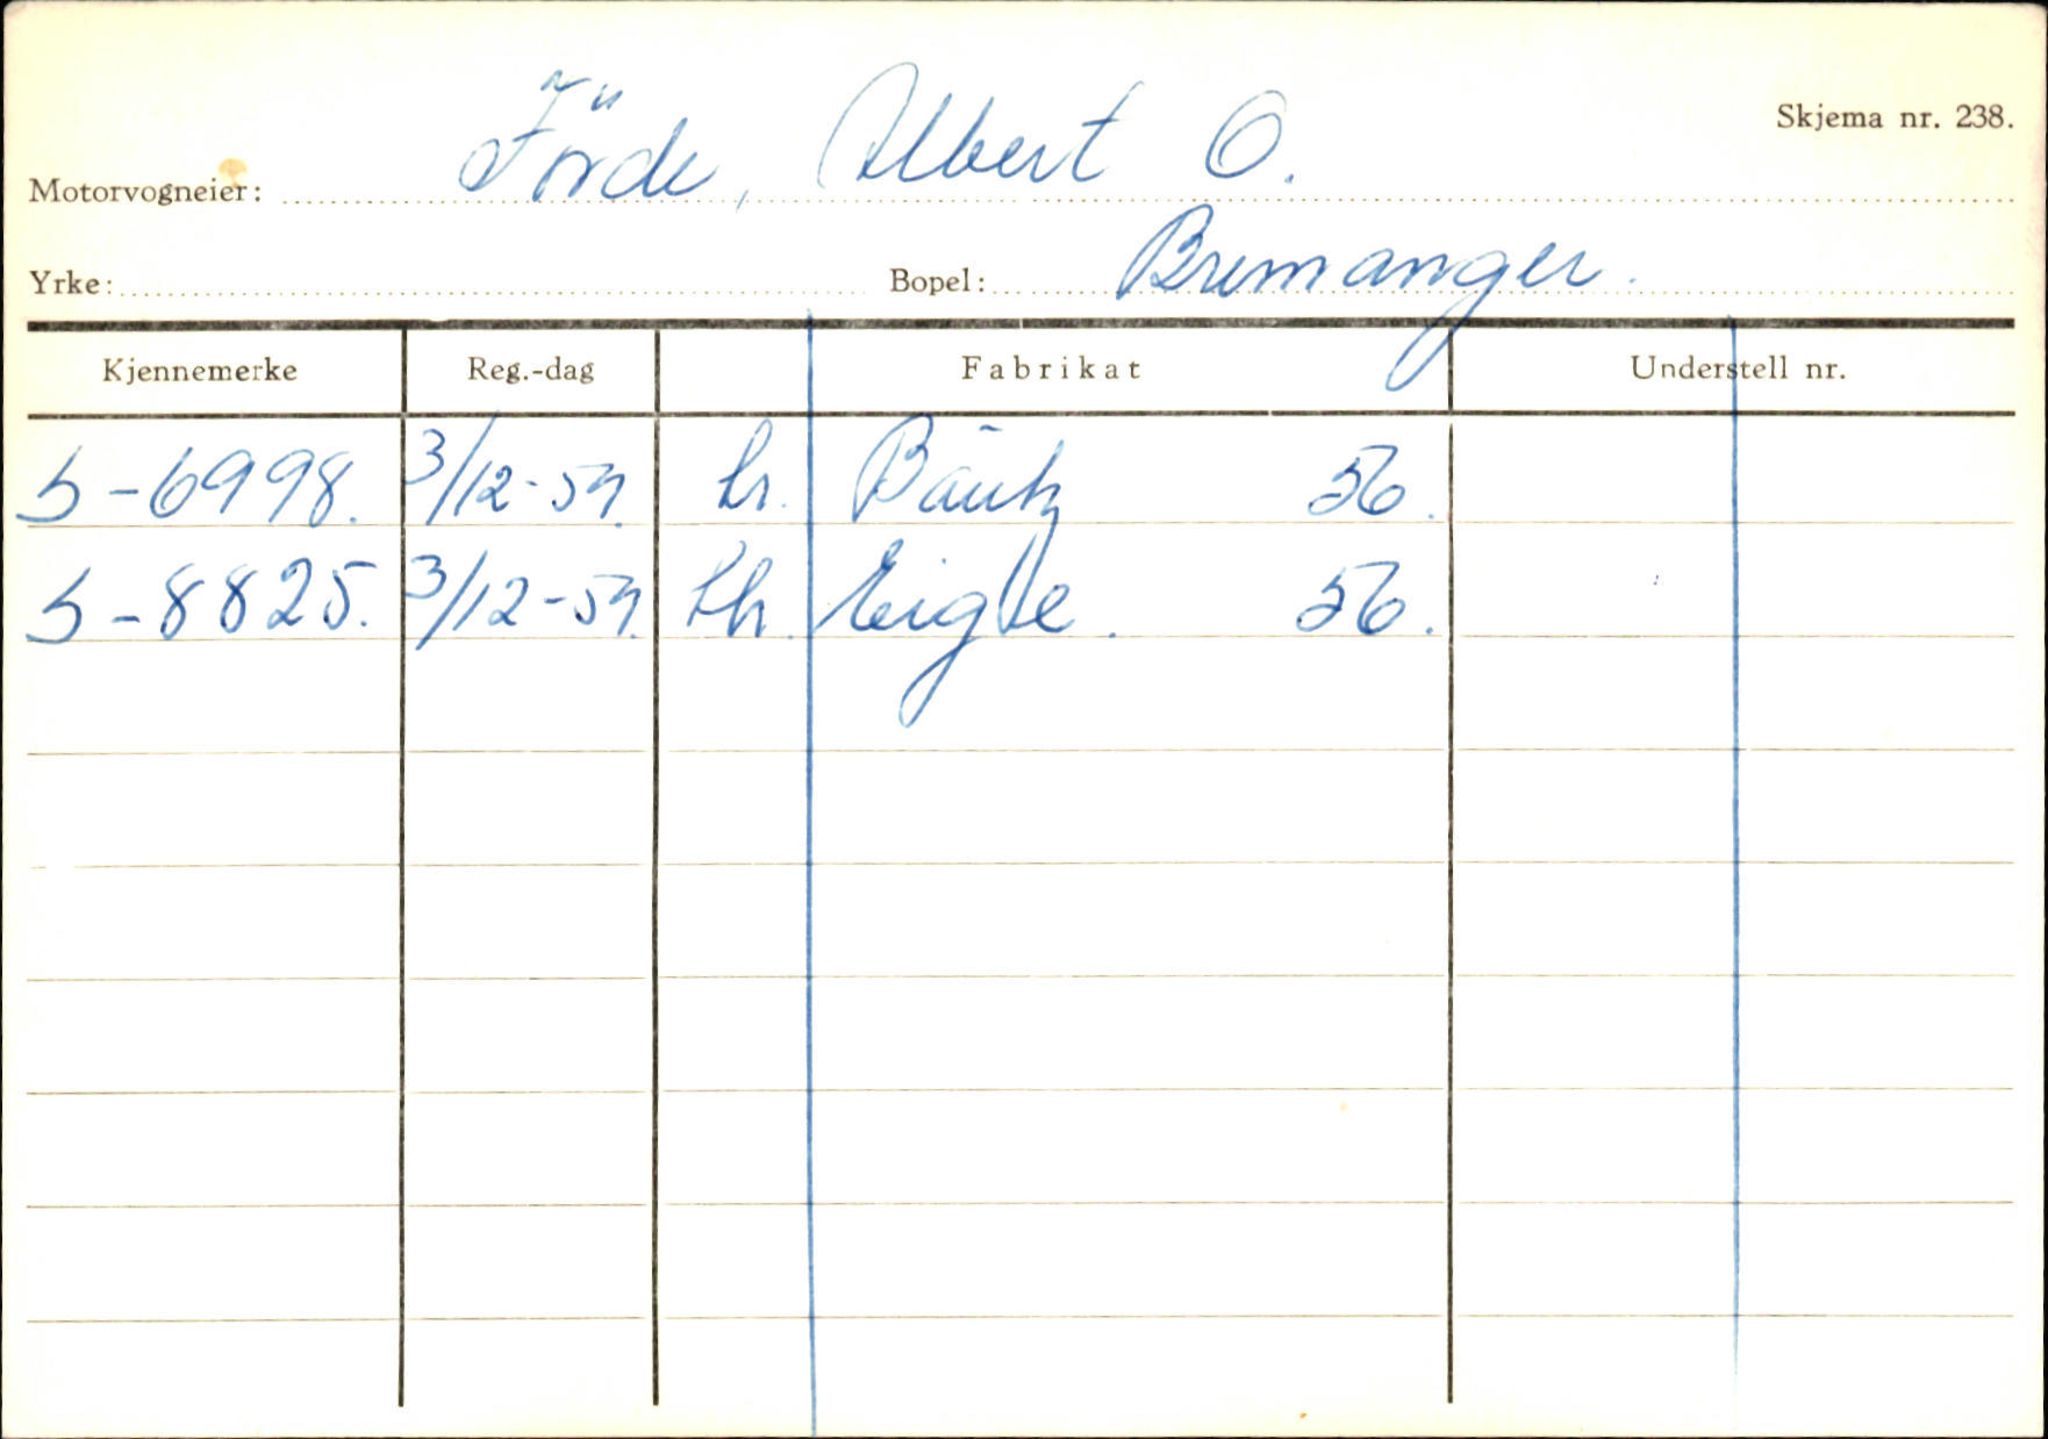 Skjema nr. 238.
Motorvogneier: Förde, Albert O.
Yrke: Bopel: Bremanger.
Kjennemerke Reg.-dag Fabrikat Understell nr.
S-6998. 3/12-57. Lr. Bautz 56.
S-8825. 3/12-57. Lh. Eigle. 56.